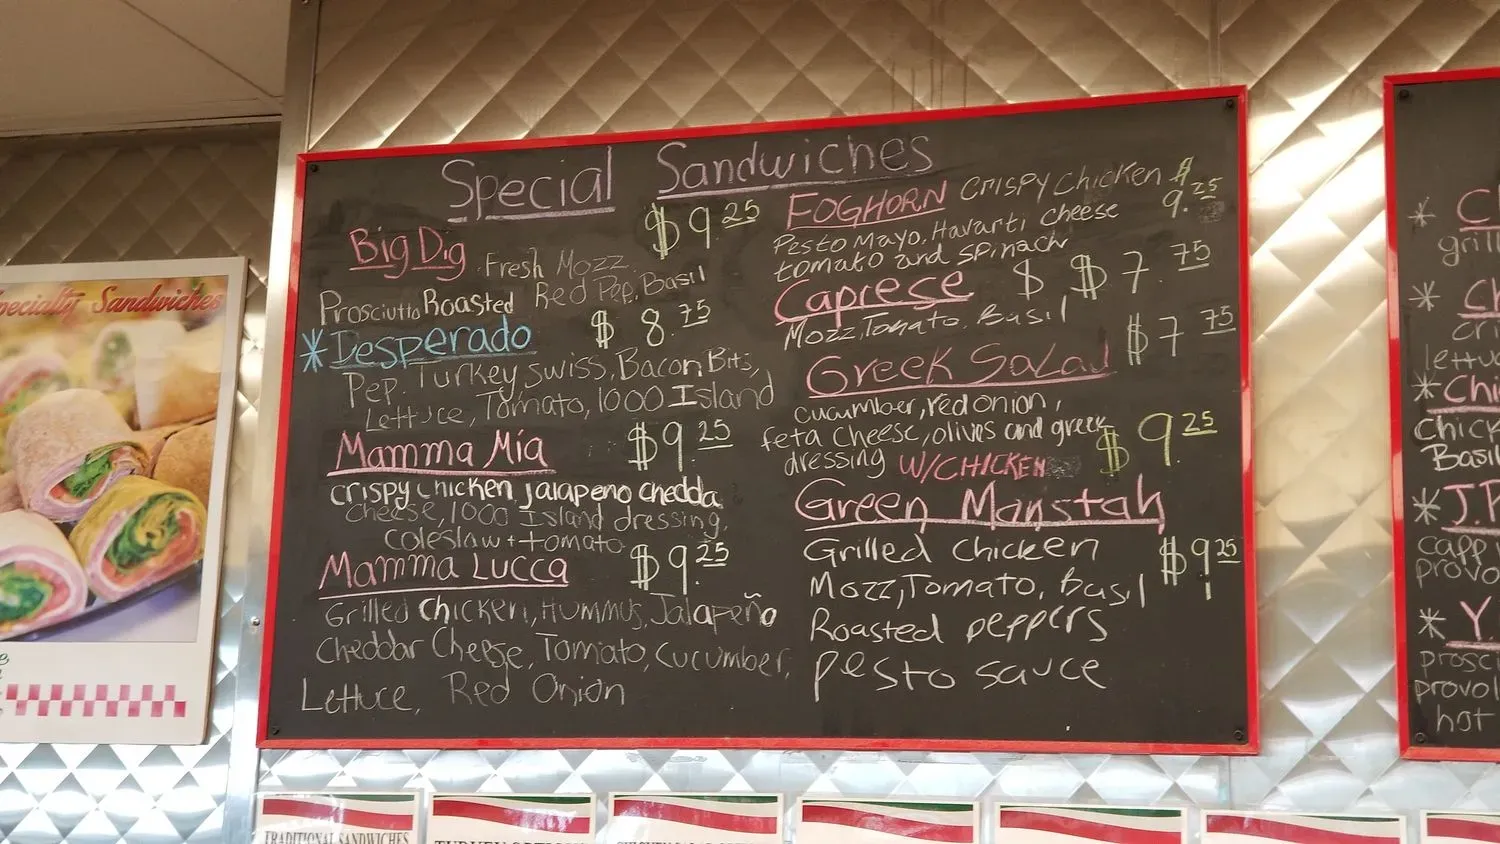 Specialty Sandwiches
Special Sandwiches
Big Dig $9.25
Fresh Mozz.
Prosciutto Roasted Red Pep, Basil
*Desperado $8.75
Pep. Turkey, Swiss, Bacon Bits,
Lettuce, Tomato, 1000 Island
Mamma Mía $9.25
crispy chicken jalapeno chedda
cheese, 1000 Island dressing,
coleslaw + tomato
Mamma Lucca $9.25
Grilled Chicken, Hummus, Jalapeño
Cheddar Cheese, Tomato, cucumber,
Lettuce, Red Onion
FOGHORN crispy chicken $9.25
Pesto Mayo, Havarti cheese
tomato and spinach
Caprese $ $7.75
Mozz, Tomato, Basil
Greek Salad $7.75
cucumber, red onion,
feta cheese, olives and greek
dressing W/CHICKEN $9.25
Green Manstah
Grilled chicken $9.25
Mozz, Tomato, Basil
Roasted peppers
pesto sauce
* C
grill
* Ch
cri
lettuc
* Chi
Chick
Basil
* J.P
capp
provo
* Y.
prosc
provol
hot
TRADITIONAL SANDWICHES